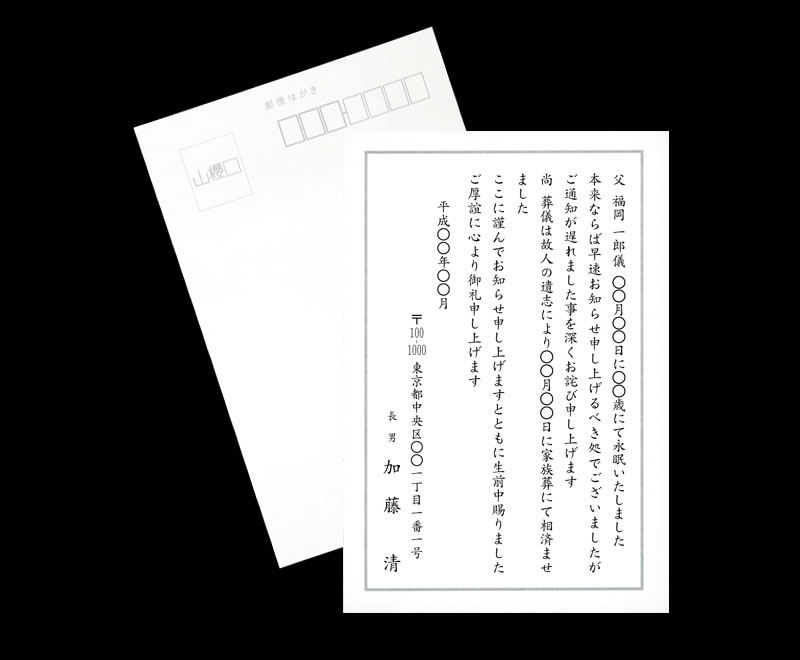 郵便はがき
山櫻
父 福岡 一郎儀 〇〇月〇〇日に〇〇歳にて永眠いたしました
本来ならば早速お知らせ申し上げるべき処でございましたが
ご通知が遅れました事を深くお詫び申し上げます
尚 葬儀は故人の遺志により〇〇月〇〇日に家族葬にて相済ませ
ました
ここに謹んでお知らせ申し上げますとともに生前中賜りました
ご厚誼に心より御礼申し上げます
平成〇〇年〇〇月
〒100-1000 東京都中央区〇〇一丁目一番一号
長男 加藤 清